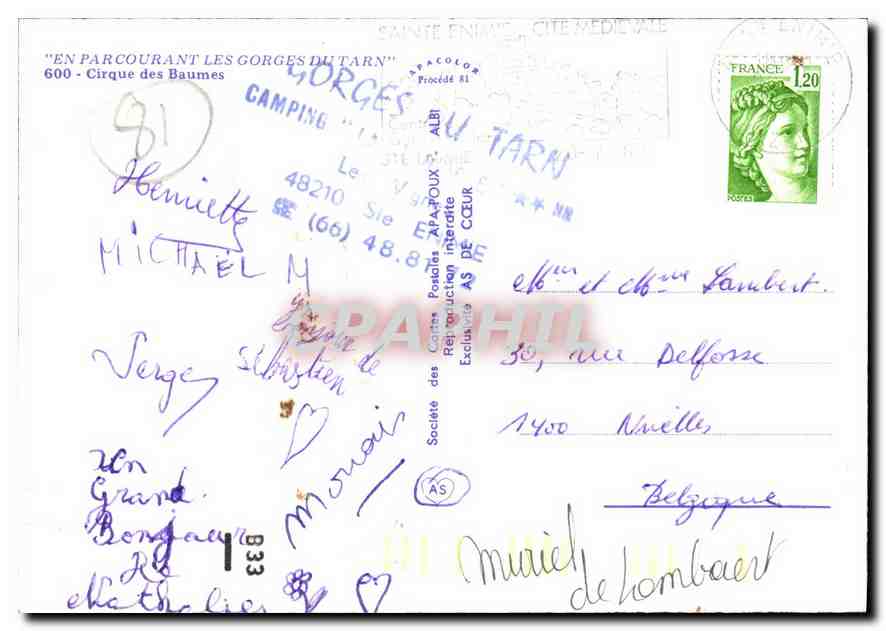 "EN PARCOURANT LES GORGES DU TARN"
600 - Cirque des Baumes
81
SAINTE ENIMIE CITE MEDIEVALE
GORGES DU TARN
CAMPING
48210 Ste ENIMIE
(66) 48.81
APACOLOR
Procédé 81
FRANCE 1,20
POSTES
Henriette
MICHAËL M
Serge
Sébastien
Bonjour de
Monais
Un
Grand
Bonjour
De
Nathalie
B33
Société des Cartes Postales APA-POUX - ALBI
Reproduction interdite
Exclusivité AS DE CŒUR
AS
SPARHIL
Mr et Mme Lambert.
30, rue Delfosse
1400 Nivelles
Belgique
muriel
de Lombaert